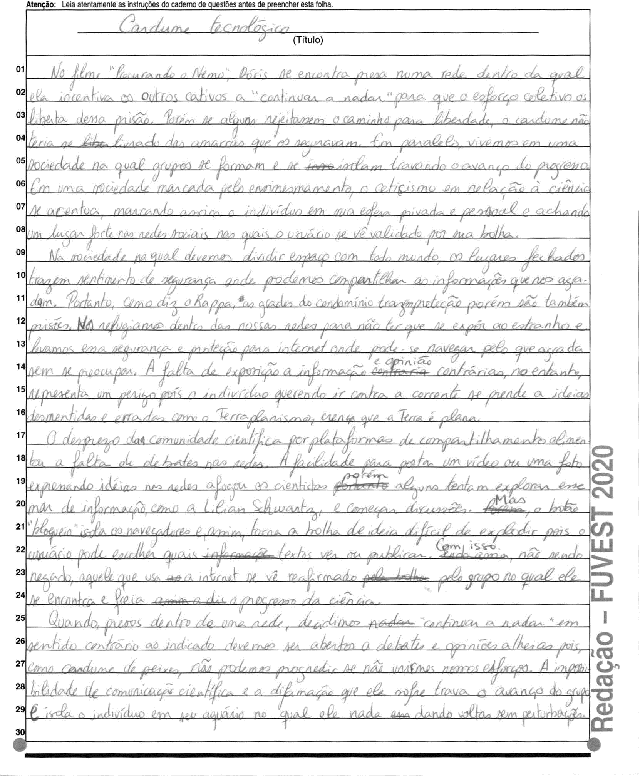 Atenção: Leia atentamente as instruções do caderno de questões antes de preencher esta folha.
Cardume tecnológico
(Título)
01 No filme "Procurando o Nemo", Dóris se encontra presa numa rede dentro da qual
02 ela incentiva os outros cativos a "continuar a nadar" para que o esforço coletivo os
03 liberta dessa prisão. Porém se alguns rejeitassem o caminho para liberdade, o cardume não
04 teria se livrado das amarras que os seguravam. Em paralelo, vivemos em uma
05 sociedade na qual grupos se formam e se isolam travando o avanço do progresso
06 Em uma sociedade marcada pelo ensimesmamento, o ceticismo em relação à ciência
07 se acentua, marcando assim o indivíduo em sua esfera privada e pessoal e achando
08 um lugar forte nas redes sociais nas quais o usuário se vê validado por sua bolha.
09 Na sociedade na qual devemos dividir espaço com todo mundo, os lugares fechados
10 trazem sentimento de segurança onde podemos compartilhar as informações que nos agra-
11 dam. Portanto, como diz o Rappa, "as grades do condomínio trazem proteção porém são também
12 prisões. Nos refugiamos dentro das nossas redes para não ter que se expôr ao estranho e
13 levamos essa segurança e proteção para internet onde pode-se navegar pelo que agrada
14 sem se preocupar. A falta de exposição a informação e opinião contrárias, no entanto,
15 representa um perigo pois o indivíduo querendo ir contra a corrente se prende a ideias
16 desmentidas e erradas como o Terraplanismo, crença que a Terra é plana.
17 O desprezo da comunidade científica por plataformas de compartilhamento alimen-
18 tou a falta de debates nas redes. A facilidade para postar um vídeo ou uma foto
19 expressando idéias nas redes afogou os cientistas porém alguns tentam explorar esse
20 mar de informação, como a Lilian Schwartz, e começam discussões. Mas o botão
21 "bloquear" isola os navegadores e, assim, torna a bolha de ideia difícil de explodir pois o
22 usuário pode escolher quais textos ver ou publicar. Com isso, não sendo
23 negado, aquele que usa a internet se vê reafirmado pelo grupo no qual ele
24 se encontra e freia o progresso da ciência.
25 Quando, presos dentro de uma rede, decidimos "continuar a nadar" em
26 sentido contrário ao indicado devemos ser abertos a debates e opiniões alheias pois,
27 como cardume de peixes, não podemos progredir se não unirmos nossos esforços. A impossi-
28 bilidade de comunicação científica e a difamação que ela sofre trava o avanço do grupo
29 e isola o indivíduo em seu aquário no qual ele nada dando voltas sem perturbações.
30
Redação – FUVEST 2020